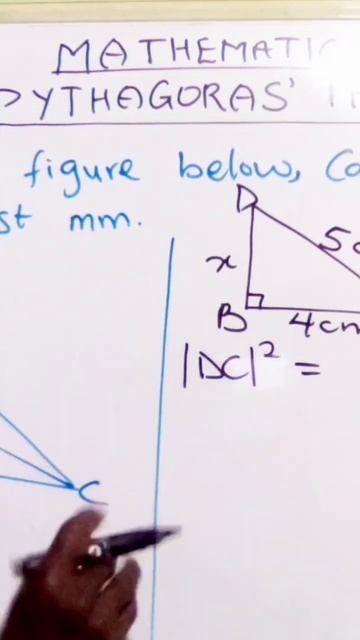 MATHEMATIC
PYTHAGORAS' T
figure below, Co
st mm.
D
5c
x
B
4cm
|DC|² =
C